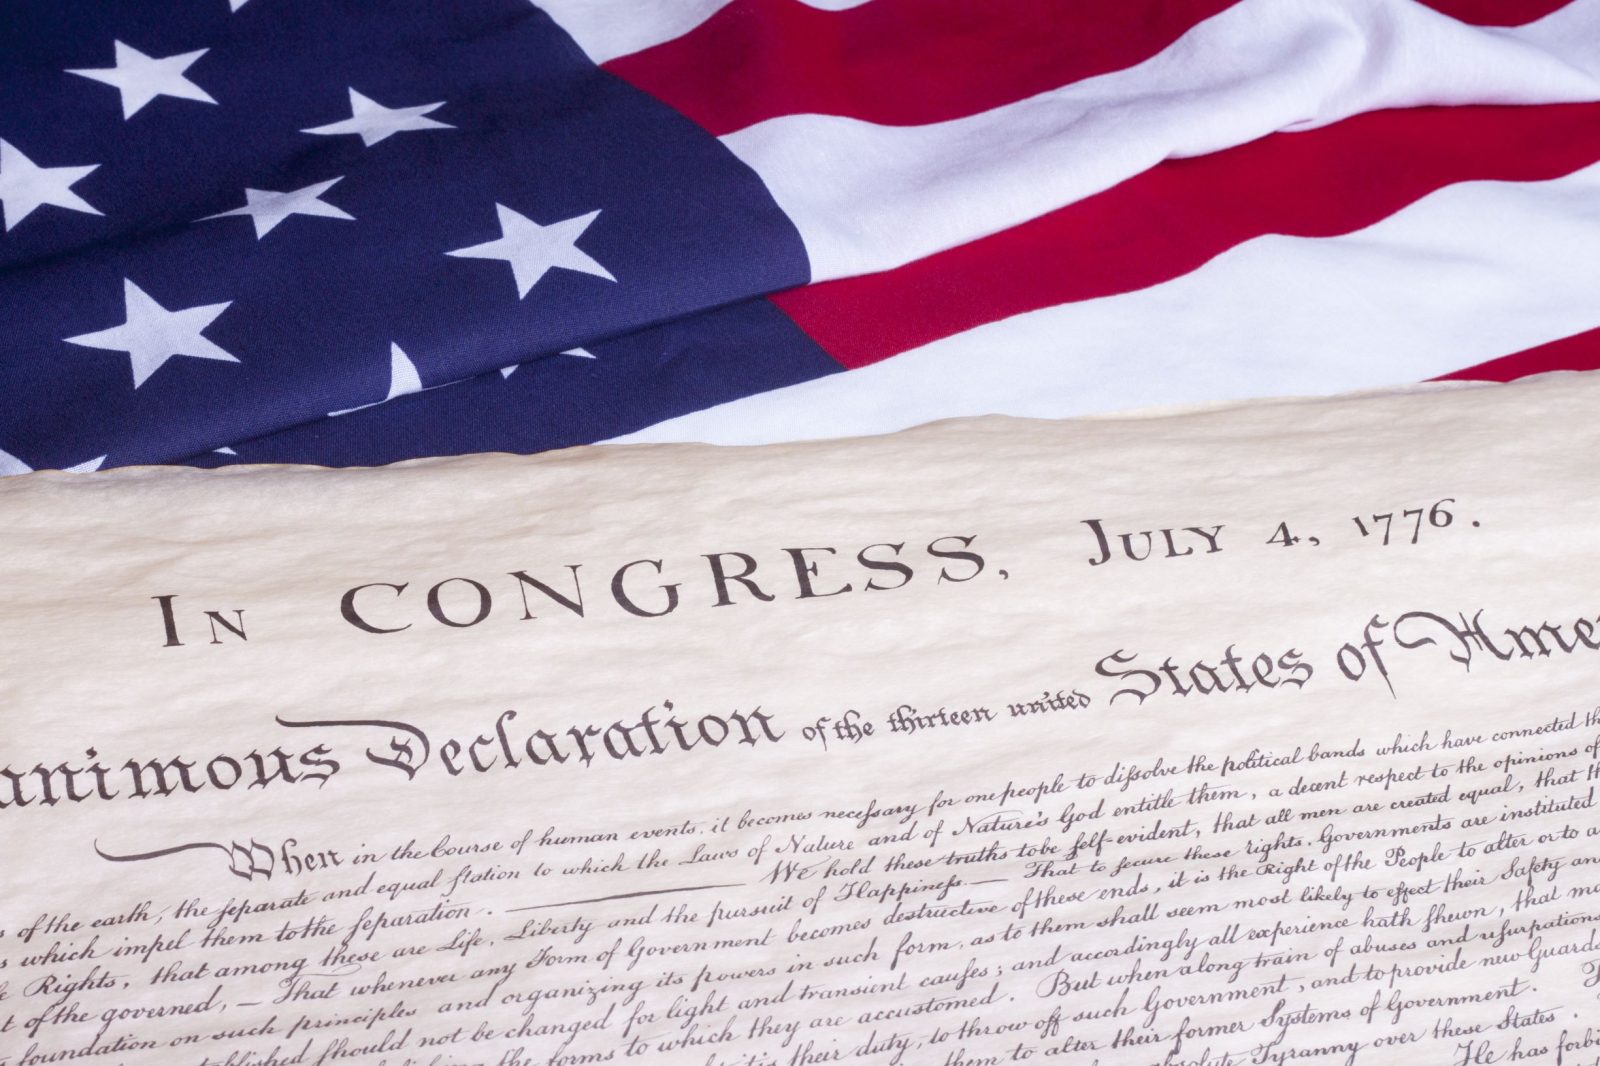 In CONGRESS, July 4, 1776.
animous Declaration of the thirteen united States of Ame
When in the Course of human events, it becomes necessary for one people to dissolve the political bands which have connected th
of the earth, the separate and equal station to which the Laws of Nature and of Nature's God entitle them, a decent respect to the opinions of
which impel them to the separation. — We hold these truths to be self-evident, that all men are created equal, that th
Rights, that among these are Life, Liberty and the pursuit of Happiness. — That to secure these rights, Governments are instituted
t of the governed, — That whenever any Form of Government becomes destructive of these ends, it is the Right of the People to alter or to a
foundation on such principles and organizing its powers in such form, as to them shall seem most likely to effect their Safety an
should not be changed for light and transient causes; and accordingly all experience hath shewn, that ma
the forms to which they are accustomed. But when a long train of abuses and usurpations
their duty, to throw off such Government, and to provide new Guards
them to alter their former Systems of Government.
Tyranny over these States.
He has forbi